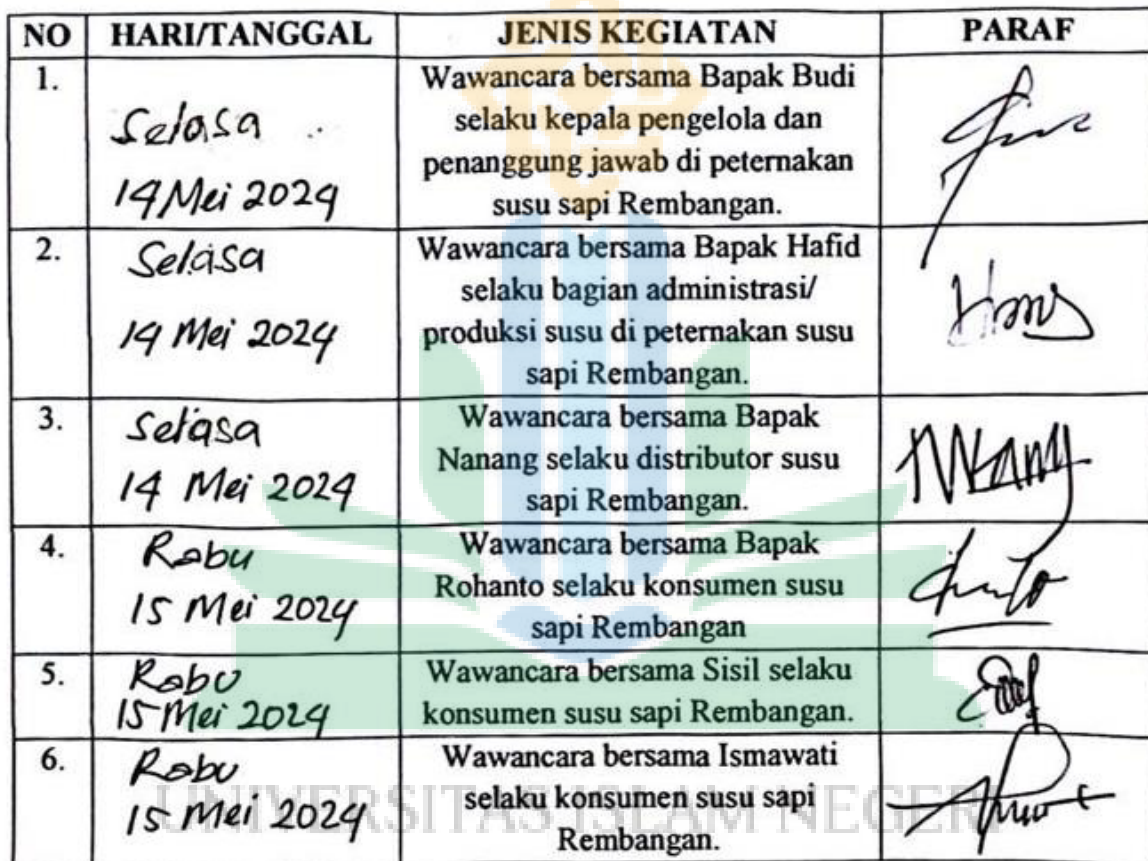 NO HARI/TANGGAL JENIS KEGIATAN PARAF
1.
Selasa
14 Mei 2024
Wawancara bersama Bapak Budi
selaku kepala pengelola dan
penanggung jawab di peternakan
susu sapi Rembangan.
2.
Selasa
14 Mei 2024
Wawancara bersama Bapak Hafid
selaku bagian administrasi/
produksi susu di peternakan susu
sapi Rembangan.
3.
Selasa
14 Mei 2024
Wawancara bersama Bapak
Nanang selaku distributor susu
sapi Rembangan.
4.
Rabu
15 Mei 2024
Wawancara bersama Bapak
Rohanto selaku konsumen susu
sapi Rembangan
5.
Rabu
15 Mei 2024
Wawancara bersama Sisil selaku
konsumen susu sapi Rembangan.
6.
Rabu
15 Mei 2024
Wawancara bersama Ismawati
selaku konsumen susu sapi
Rembangan.
UNIVERSITAS ISLAM NEGERI